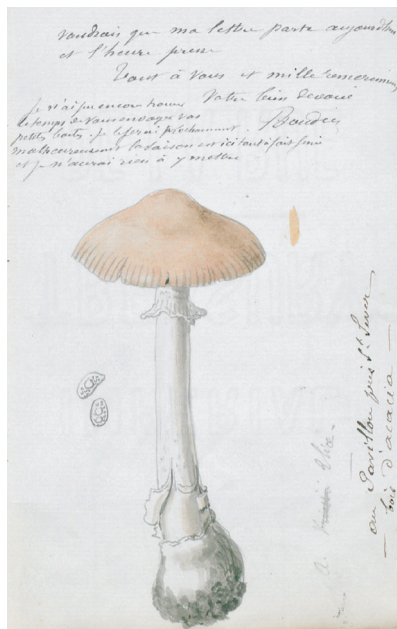 voudrais que ma lettre parte aujourdhui
et l'heure presse
Tout à vous et mille remerciemens
Votre bien dévoué
Je n'ai pu encore trouver
le temps de vous envoyer vos
petits . Je le ferai prochainement.
malheureusement la saison est ici tout à fait finie
et je n'aurai rien à y mettre
au Pavillon près St Sever
bois d'acacia